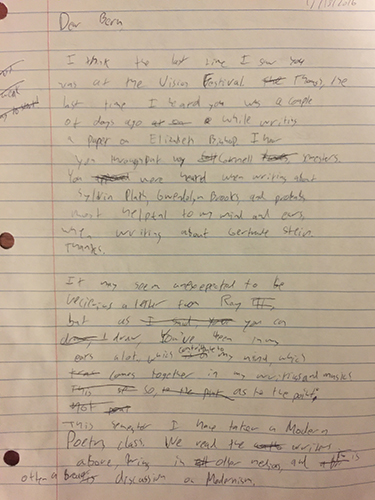 Dear Bern,
I think the last time I saw you
was at the Vision Festival. Though, the
last time I heard you was a couple
of days ago while writing
a paper on Elizabeth Bishop I hear
you throughout my Cornell semesters.
You were heard when writing about
Sylvia Plath, Gwendolyn Brooks, and probably
most helpful to my mind and ears,
when writing about Gertrude Stein
Thanks.
It may seem unexpected to be
recieving a letter from Ray
but as you can
I draw, You've been in my
ears alot which contribute to my mind, which
comes together in my writings and musics
So, as to the point,
This semester I have taken a Modern
Poetry class. We read the writers
above, bring in other medium, and
often a broader discussion on Modernism.